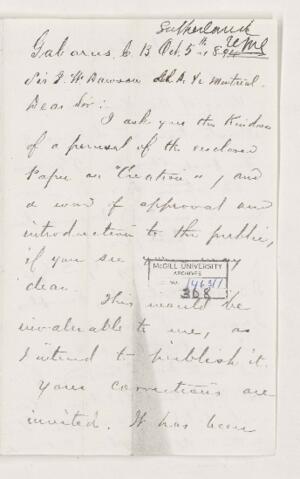 Sutherland
Gabarus, C. B. Oct. 5th 1894
Sir J. W. Dawson Montreal.
Dear Sir:
I ask you the kindness
of a perusal of the enclosed
Paper on "Creation", and
a word of approval and
introduction to the public,
if you see your way
clear.
McGILL UNIVERSITY
ARCHIVES
368
This would be
invaluable to me, as
I intend to publish it.
Your corrections are
invited. It has been